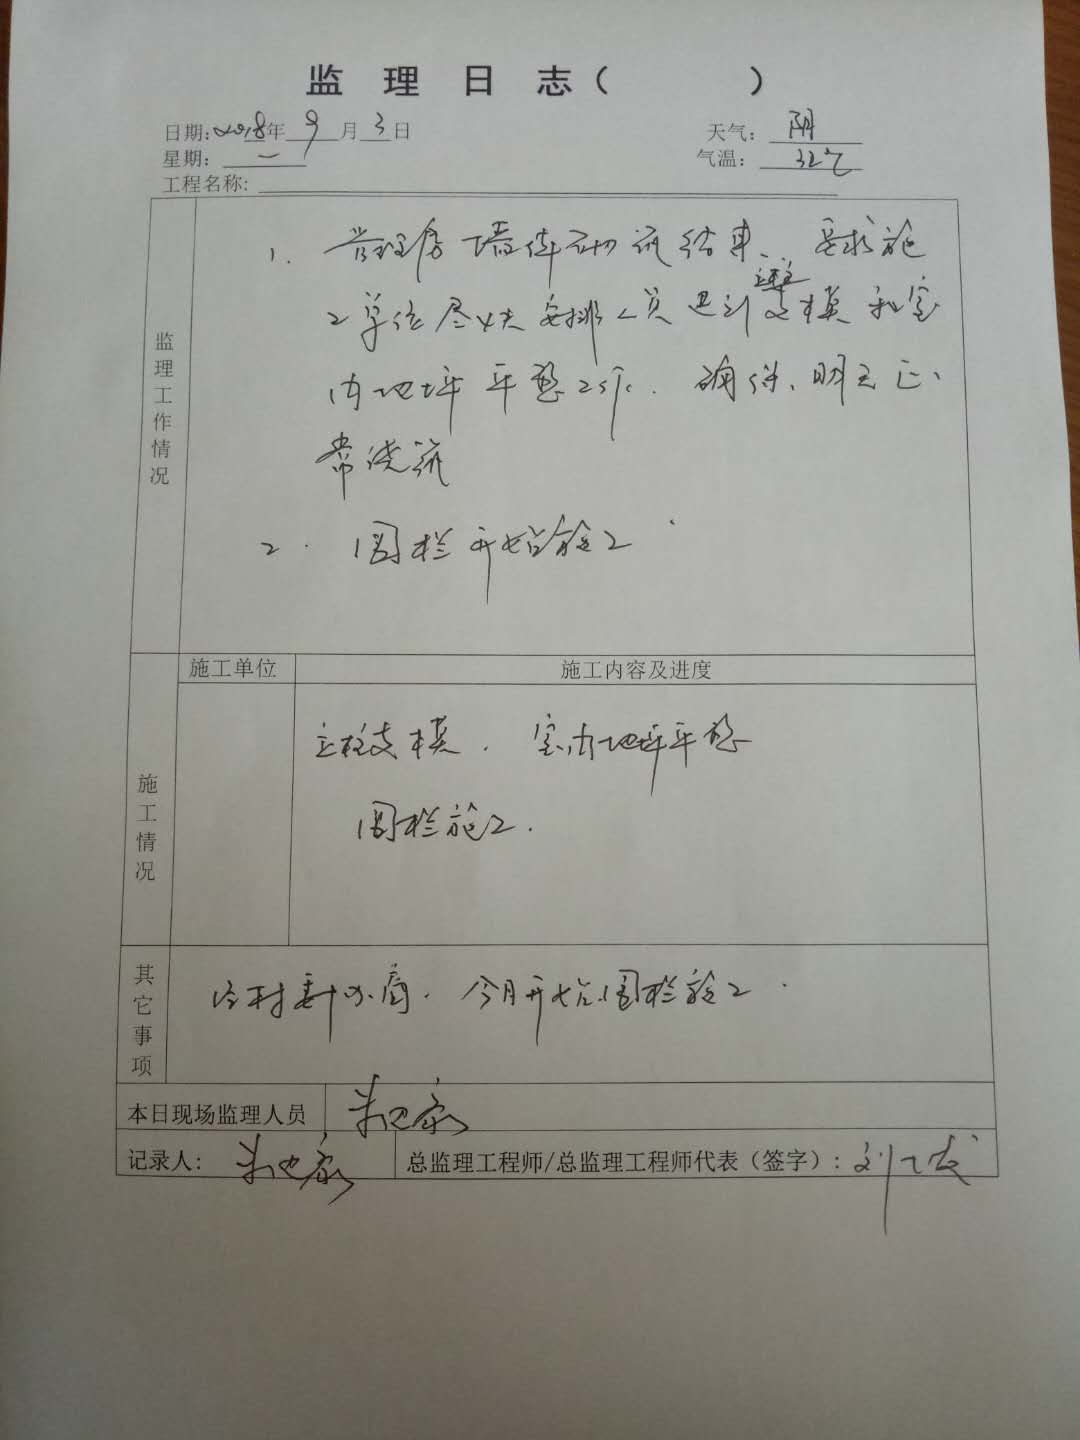 监 理 日 志（　　　）
日期：2018年 9 月 3 日　天气： 阴
星期： 一　气温： 32℃
工程名称：
监理工作情况
1. 管理房墙体砌筑结束、要求施
工单位尽快安排人员进行立柱支模和室
内地坪平整工作. 确保、明天正
常浇筑
2. 围栏开始施工.
施工情况
施工单位　施工内容及进度
立柱支模. 室内地坪平整
围栏施工.
其它事项
村委 商. 今 开始围栏施工.
本日现场监理人员
记录人：　总监理工程师/总监理工程师代表（签字）：刘